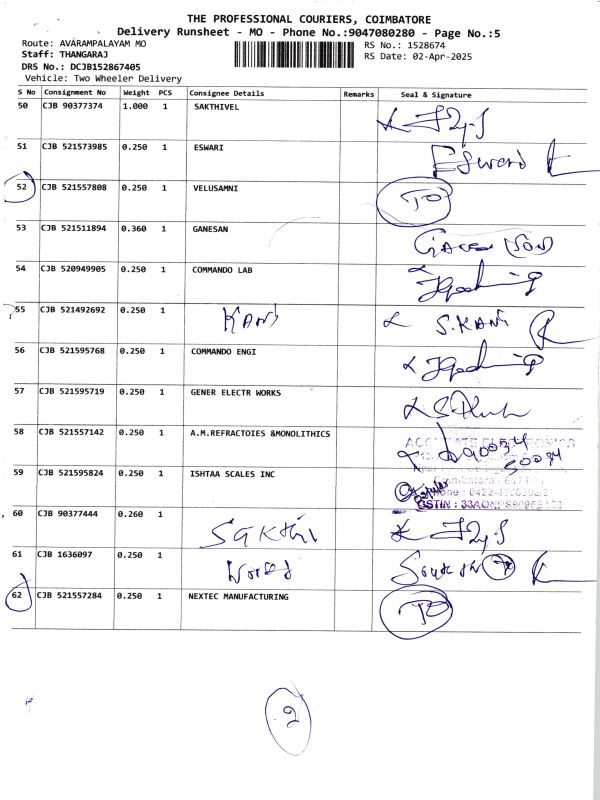 THE PROFESSIONAL COURIERS, COIMBATORE
Delivery Runsheet - MO - Phone No.:9047080280 - Page No.:5
Route: AVARAMPALAYAM MO RS No.: 1528674
Staff: THANGARAJ RS Date: 02-Apr-2025
DRS No.: DCJB152867405
Vehicle: Two Wheeler Delivery
S No Consignment No Weight PCS Consignee Details Remarks Seal & Signature
50 CJB 90377374 1.000 1 SAKTHIVEL
51 CJB 521573985 0.250 1 ESWARI
52 CJB 521557808 0.250 1 VELUSAMNI TO
53 CJB 521511894 0.360 1 GANESAN
54 CJB 520949905 0.250 1 COMMANDO LAB
55 CJB 521492692 0.250 1 KANI S.KANI
56 CJB 521595768 0.250 1 COMMANDO ENGI
57 CJB 521595719 0.250 1 GENER ELECTR WORKS
58 CJB 521557142 0.250 1 A.M.REFRACTOIES &MONOLITHICS
59 CJB 521595824 0.250 1 ISHTAA SCALES INC
60 CJB 90377444 0.260 1 SaKthi
61 CJB 1636097 0.250 1
62 CJB 521557284 0.250 1 NEXTEC MANUFACTURING TO
2